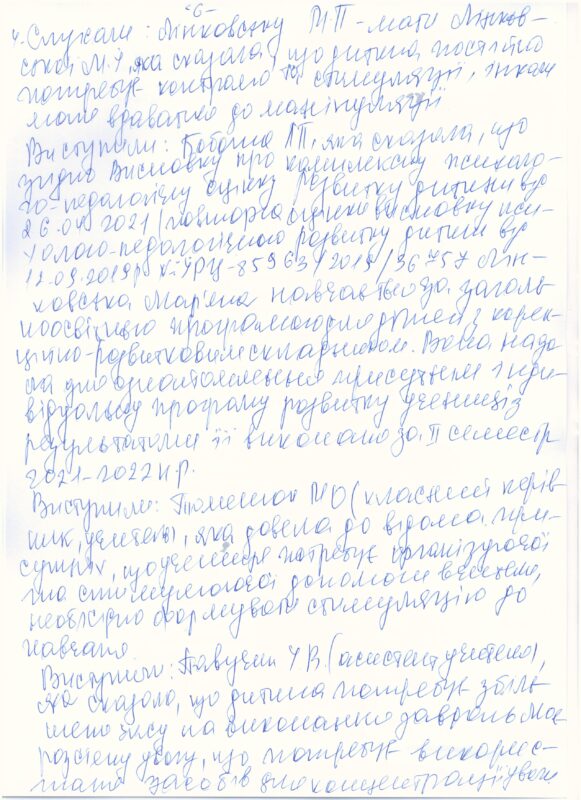 -6-
4. Слухали: Лінковську М.П - мати Лінков-
ської М.Я, яка сказала, що дитина постійно
потребує контролю та стимуляції, інколи
може вдаватись до маніпуляції.
Виступили: Бобошко Л.П., яка сказала, що
згідно Висновку про комплексну психоло-
го-педагогічну оцінку розвитку дитини від
26.04 2021 (повторна оцінка висновку пси-
холого-педагогічного розвитку дитини від
12.09.2019р № ІРЦ-85963/2019/36757 Лін-
ковська Мар'яна навчається за заголь
ноосвітньою програмою для дітей з корек-
ційно-розвитковим складником. Вона нада-
ла для ознайомлення присутнім інди-
відуальну програму розвитку учениці із
результатами її виконання за ІІ семестр
2021-2022 н.р.
Виступили: М.О (класний керів-
ник, учитель), яка довела до відома при-
сутніх, що учениця потребує організуючої
та стимулюючої допомоги вчителя,
необхідно формувати стимуляцію до
навчання.
Виступили: Павучек У.В. (асистент учителя),
яка сказала, що дитина потребує збіль-
шено часу на виконання завдань. Має
розсіяну увагу, що потребує викорис-
тання засобів для концентрації уваги